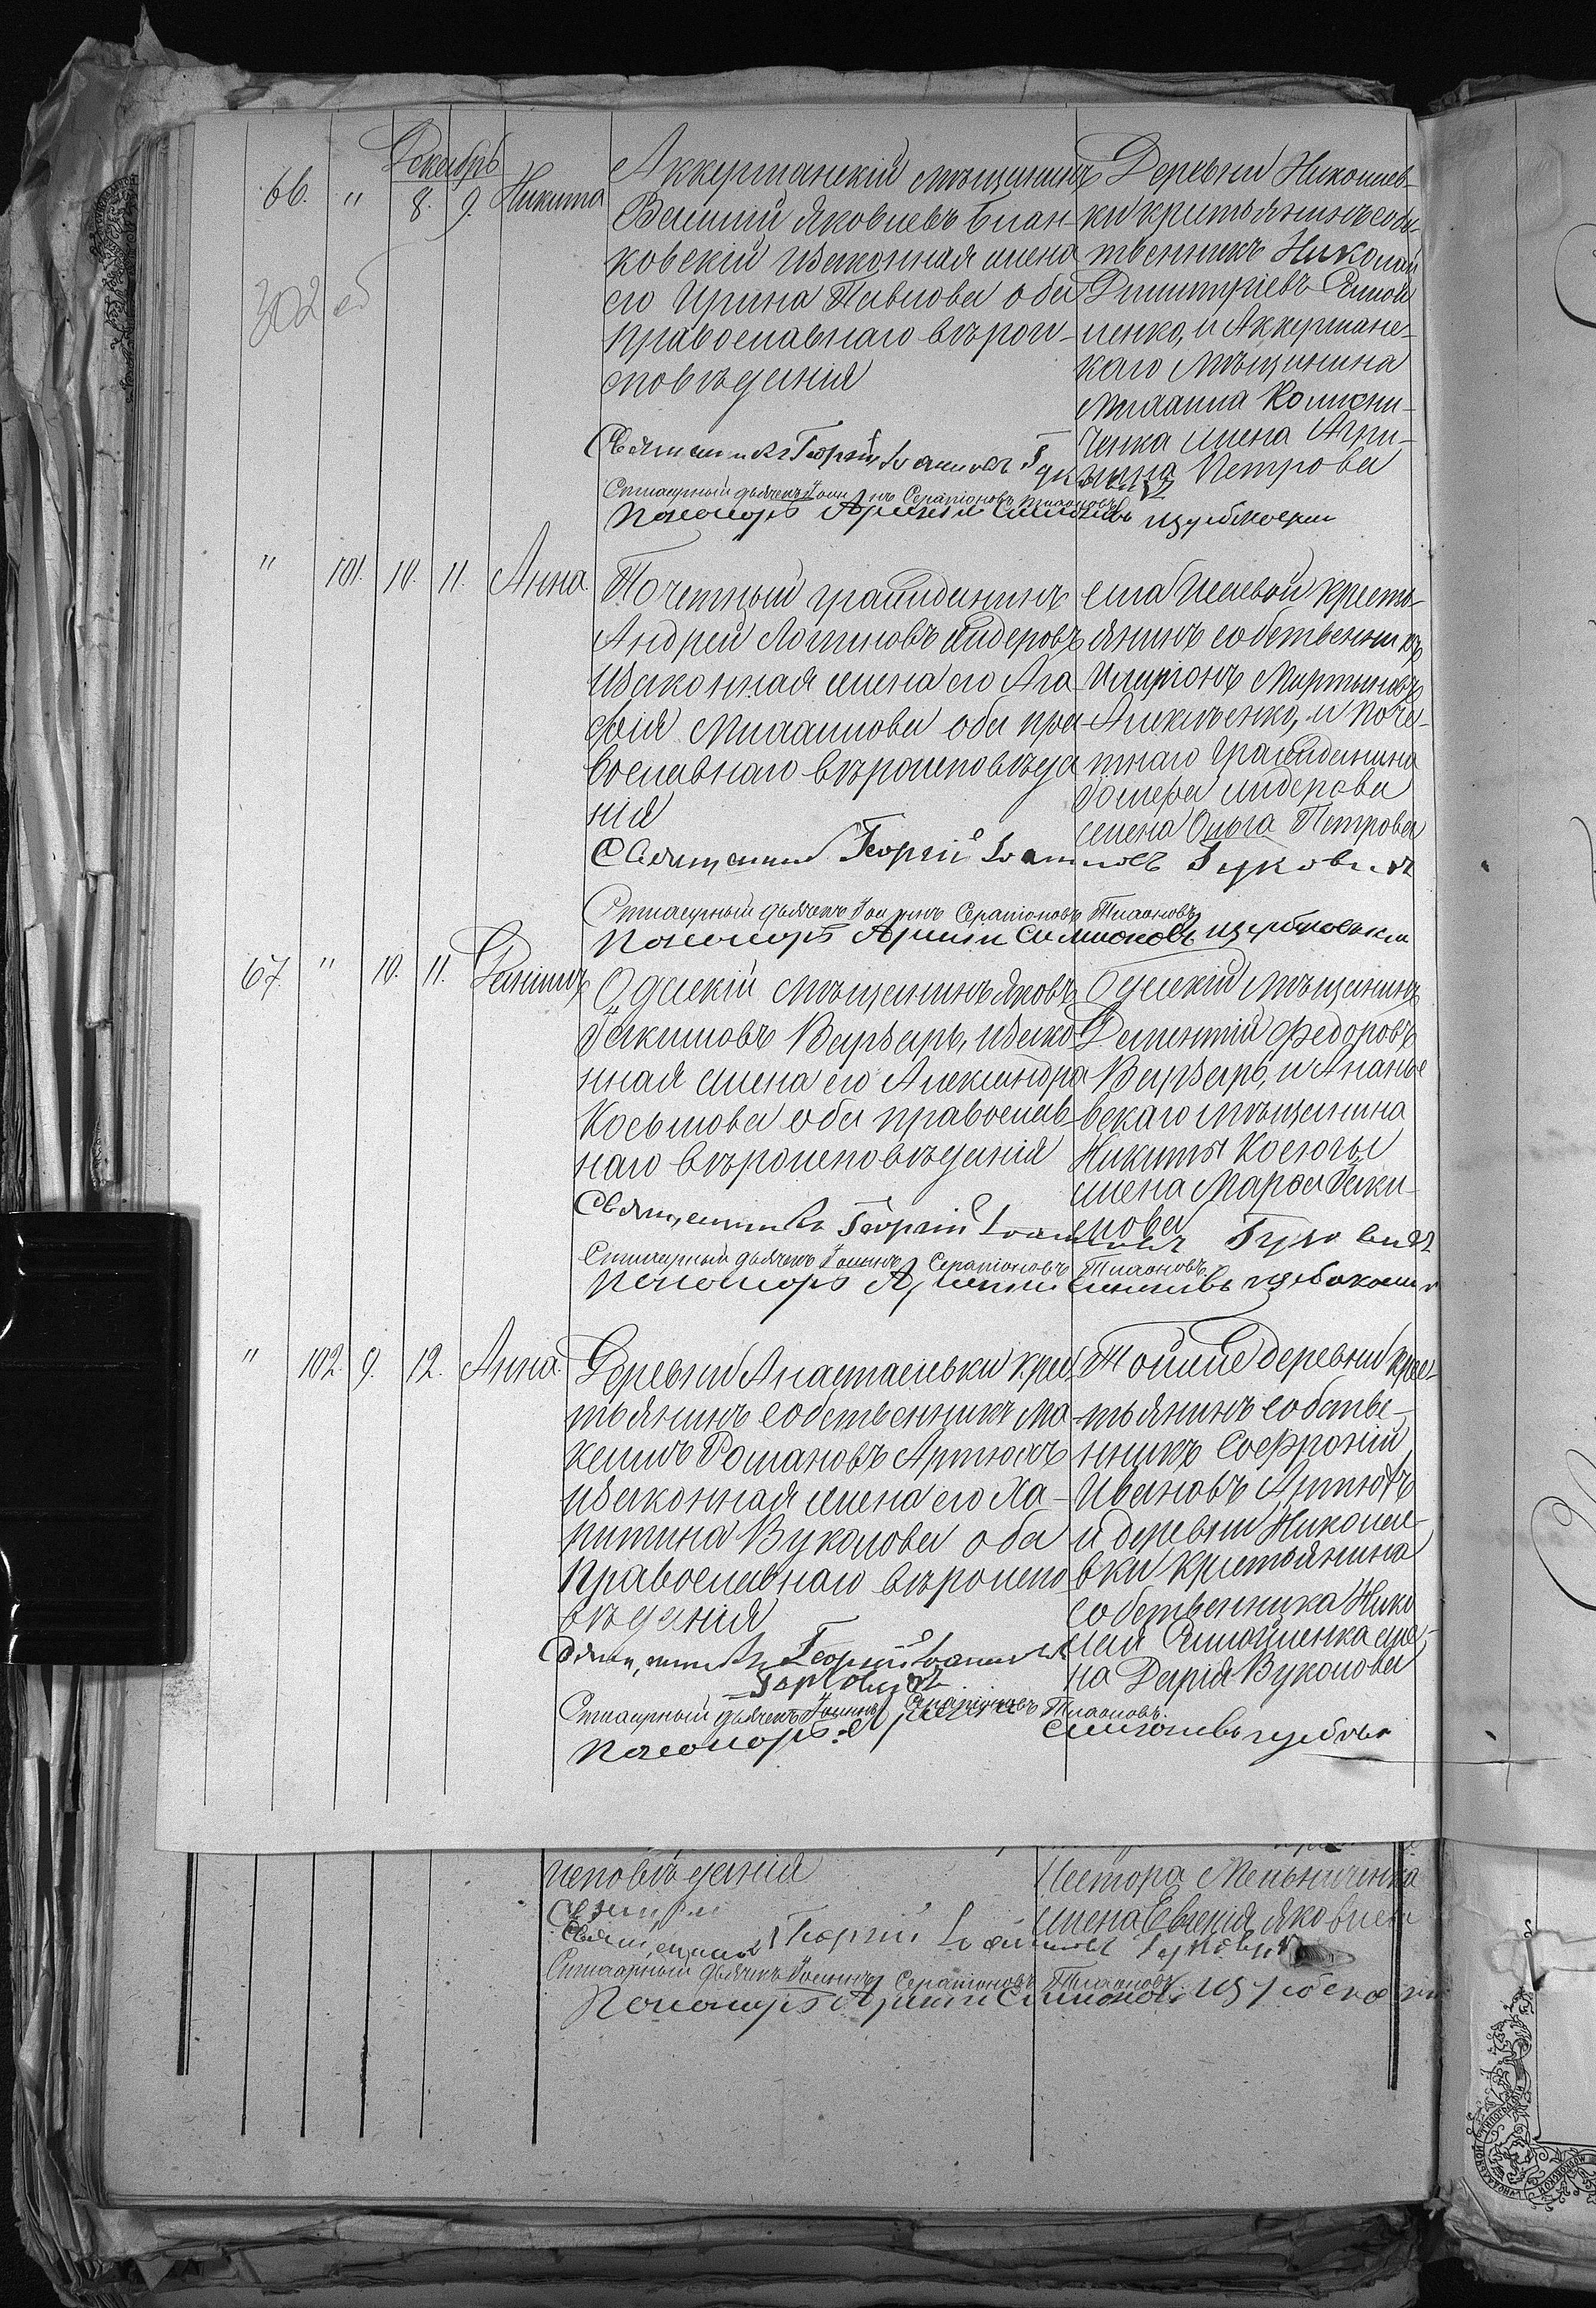 Декабрь
66. " 8. 9. Никита
302 об
Аккерманскій мѣщанинъ
Василій Яковлевъ Блан-
ковскій изаконная жена
его Ирина Павлова оба
православнаго вѣрои-
сповѣданія
Деревни Николаев-
ки крестьянинъ собс-
твенникъ Николай
Димитріевъ
ленко, и Аккерманс-
каго мѣщанина
Михаила Колисни-
ченка жена Агри-
пина Петрова
Священникъ Георгій Іоанновъ
Сташарный дьячекъ Іоаннъ Серапіоновъ Тихоновъ
Пономарь
" 101. 10. 11. Анна
Почетный гражданинъ
Андрей Логиновъ Лидеровъ
изаконная жена его Ага
фія Михаилова оба пра-
вославнаго вѣроисповѣда
нія
села Исаевой кресть-
янинъ собственникъ
Иларіонъ Мартыновъ
Алексѣенко, и поче-
тнаго гражданина
Лидерова
жена Ольга Петрова
Священникъ Георгій Іоанновъ Гукович
Сташарный дьячекъ Іоаннъ Серапіоновъ Тихоновъ
Пономарь
67. " 10. 11. Даніилъ
Одесскій мѣщанинъ Яковъ
Іакимовъ Варзарь, изако
нная жена его Александра
Косьмова оба православ-
наго вѣроисповѣданія
Одесскій мѣщанинъ
Дементій Федоровъ
Варзарь, и Ананье
вскаго мѣщанина
Никиты
жена Марфа Іаки-
мова
Священникъ Георгій Іоанновъ Гукович
Сташарный дьячекъ Іоаннъ Серапіоновъ Тихоновъ
Пономарь
" 102. 9. 12. Анна.
Деревни Анастасіевки крес
тьянинъ собственникъ Ма
ксимъ Романовъ Артюхъ
изаконная жена его Ха-
ритина Вуколова оба
православнаго вѣроиспо
вѣданія
Тойже деревни крес-
тьянинъ собстве-
нникъ Софроній
Ивановъ Артюхъ
и деревни Никола-
вки крестьянина
собственника Нико
лая же
на Дарія Вуколова
Священникъ Георгій Іоанновъ
Сташарный дьячекъ Іоаннъ Серапіоновъ Тихоновъ
Пономарь
исповѣданія
Нестора Мельниченка
жена Евгенія Яковлева
Священникъ Георгій Іоанновъ Гукович
Сташарный дьячекъ Іоаннъ Серапіоновъ Тихоновъ
Пономарь